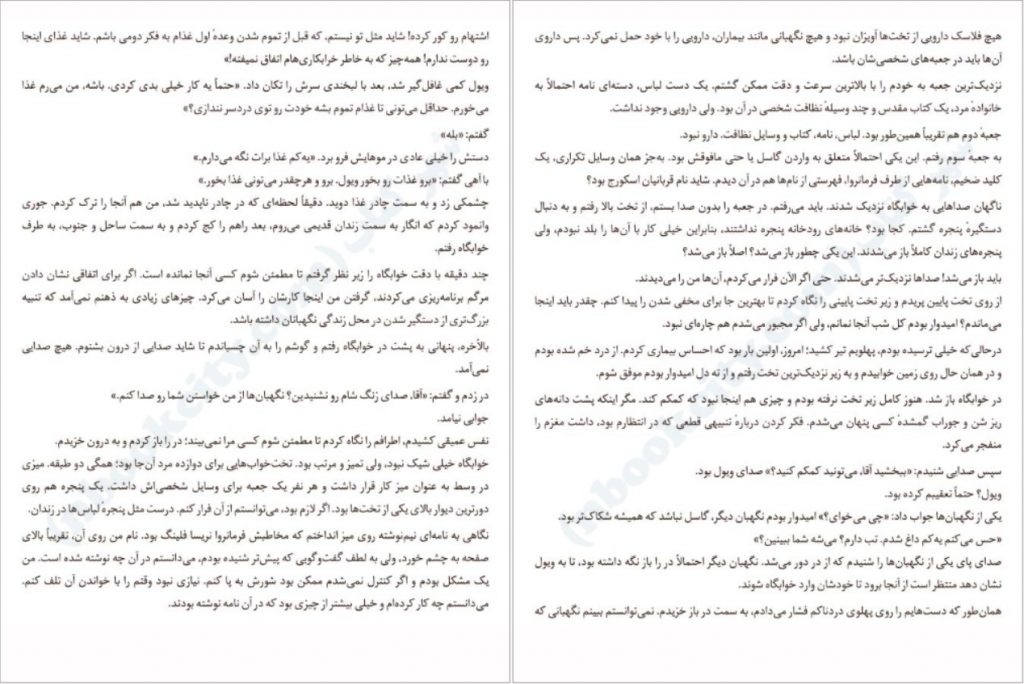 اشتهام رو کور کرده! شاید مثل تو نیستم، که قبل از تموم شدن وعدهٔ اول غذام به فکر دومی باشم. شاید غذای اینجا
رو دوست ندارم! همه‌چیز که به خاطر خرابکاری‌هام اتفاق نمیفته!»
ویول کمی غافل‌گیر شد، بعد با لبخندی سرش را تکان داد. «حتماً یه کار خیلی بدی کردی. باشه، من می‌رم غذا
می‌خورم. حداقل می‌تونی تا غذام تموم بشه خودت رو توی دردسر نندازی؟»
گفتم: «بله»
دستش را خیلی عادی در موهایش فرو برد. «یه‌کم غذا برات نگه می‌دارم.»
با آهی گفتم: «برو غذات رو بخور ویول. برو و هرچقدر می‌تونی غذا بخور.»
چشمکی زد و به سمت چادر غذا دوید. دقیقاً لحظه‌ای که در چادر ناپدید شد، من هم آنجا را ترک کردم. جوری
وانمود کردم که انگار به سمت زندان قدیمی می‌روم، بعد راهم را کج کردم و به سمت ساحل و جنوب، به طرف
خوابگاه رفتم.
چند دقیقه با دقت خوابگاه را زیر نظر گرفتم تا مطمئن شوم کسی آنجا نمانده است. اگر برای اتفاقی نشان دادن
مرگم برنامه‌ریزی می‌کردند، گرفتن من اینجا کارشان را آسان می‌کرد. چیزهای زیادی به ذهنم نمی‌آمد که تنبیه
بزرگ‌تری از دستگیر شدن در محل زندگی نگهبانان داشته باشد.
بالأخره، پنهانی به پشت در خوابگاه رفتم و گوشم را به آن چسباندم تا شاید صدایی از درون بشنوم. هیچ صدایی
نمی‌آمد.
در زدم و گفتم: «آقا، صدای زنگ شام رو نشنیدین؟ نگهبان‌ها از من خواستن شما رو صدا کنم.»
جوابی نیامد.
نفس عمیقی کشیدم، اطرافم را نگاه کردم تا مطمئن شوم کسی مرا نمی‌بیند؛ در را باز کردم و به درون خزیدم.
خوابگاه خیلی شیک نبود، ولی تمیز و مرتب بود. تخت‌خواب‌هایی برای دوازده مرد آن‌جا بود؛ همگی دو طبقه. میزی
در وسط به عنوان میز کار قرار داشت و هر نفر یک جعبه برای وسایل شخصی‌اش داشت. یک پنجره هم روی
دورترین دیوار بالای یکی از تخت‌ها بود. اگر لازم بود، می‌توانستم از آن فرار کنم. درست مثل پنجره لباس‌ها در زندان.
نگاهی به نامه‌ای نیم‌نوشته روی میز انداختم که مخاطبش فرمانروا نریسا فلینگ بود. نام من روی آن، تقریباً بالای
صفحه به چشم خورد، ولی به لطف گفت‌وگویی که پیش‌تر شنیده بودم، می‌دانستم در آن چه نوشته شده است. من
یک مشکل بودم و اگر کنترل نمی‌شدم ممکن بود شورش به پا کنم. نیازی نبود وقتم را با خواندن آن تلف کنم.
می‌دانستم چه کار کرده‌ام و خیلی بیشتر از چیزی بود که در آن نامه نوشته بودند.
هیچ فلاسک دارویی از تخت‌ها آویزان نبود و هیچ نگهبانی مانند بیماران، دارویی را با خود حمل نمی‌کرد. پس داروی
آن‌ها باید در جعبه‌های شخصی‌شان باشد.
نزدیک‌ترین جعبه به خودم را با بالاترین سرعت و دقت ممکن گشتم. یک دست لباس، دسته‌ای نامه احتمالاً به
خانوادهٔ مرد، یک کتاب مقدس و چند وسیلهٔ نظافت شخصی در آن بود. ولی دارویی وجود نداشت.
جعبهٔ دوم هم تقریباً همین‌طور بود. لباس، نامه، کتاب و وسایل نظافت. دارو نبود.
به جعبهٔ سوم رفتم. این یکی احتمالاً متعلق به واردن گاسل یا حتی مافوقش بود. به‌جز همان وسایل تکراری، یک
کلید ضخیم، نامه‌هایی از طرف فرمانروا، فهرستی از نام‌ها هم در آن دیدم. شاید نام قربانیان اسکورچ بود؟
ناگهان صداهایی به خوابگاه نزدیک شدند. باید می‌رفتم. در جعبه را بدون صدا بستم، از تخت بالا رفتم و به دنبال
دستگیرهٔ پنجره گشتم. کجا بود؟ خانه‌های رودخانه پنجره نداشتند، بنابراین خیلی کار با آن‌ها را بلد نبودم، ولی
پنجره‌های زندان کاملاً باز می‌شدند. این یکی چطور باز می‌شد؟ اصلاً باز می‌شد؟
باید باز می‌شد! صداها نزدیک‌تر می‌شدند. حتی اگر الآن فرار می‌کردم، آن‌ها من را می‌دیدند.
از روی تخت پایین پریدم و زیر تخت پایینی را نگاه کردم تا بهترین جا برای مخفی شدن را پیدا کنم. چقدر باید اینجا
می‌ماندم؟ امیدوار بودم کل شب آنجا نمانم، ولی اگر مجبور می‌شدم هم چاره‌ای نبود.
درحالی‌که خیلی ترسیده بودم، پهلویم تیر کشید؛ امروز، اولین بار بود که احساس بیماری کردم. از درد خم شده بودم
و در همان حال روی زمین خوابیدم و به زیر نزدیک‌ترین تخت رفتم و از ته دل امیدوار بودم موفق شوم.
در خوابگاه باز شد. هنوز کامل زیر تخت نرفته بودم و چیزی هم اینجا نبود که کمکم کند. مگر اینکه پشت دانه‌های
ریز شن و جوراب گمشدهٔ کسی پنهان می‌شدم. فکر کردن دربارهٔ تنبیهی قطعی که در انتظارم بود، داشت مغزم را
منفجر می‌کرد.
سپس صدایی شنیدم: «ببخشید آقا، می‌تونید کمکم کنید؟» صدای ویول بود.
ویول؟ حتماً تعقیبم کرده بود.
یکی از نگهبان‌ها جواب داد: «چی می‌خوای؟» امیدوار بودم نگهبان دیگر، گاسل نباشد که همیشه شکاک‌تر بود.
«حس می‌کنم یه‌کم داغ شدم. تب دارم؟ می‌شه شما ببینین؟»
صدای پای یکی از نگهبان‌ها را شنیدم که از در دور می‌شد. نگهبان دیگر احتمالاً در را باز نگه داشته بود، تا به ویول
نشان دهد منتظر است از آنجا برود تا خودشان وارد خوابگاه شوند.
همان‌طور که دست‌هایم را روی پهلوی دردناکم فشار می‌دادم، به سمت در باز خزیدم. نمی‌توانستم ببینم نگهبانی که